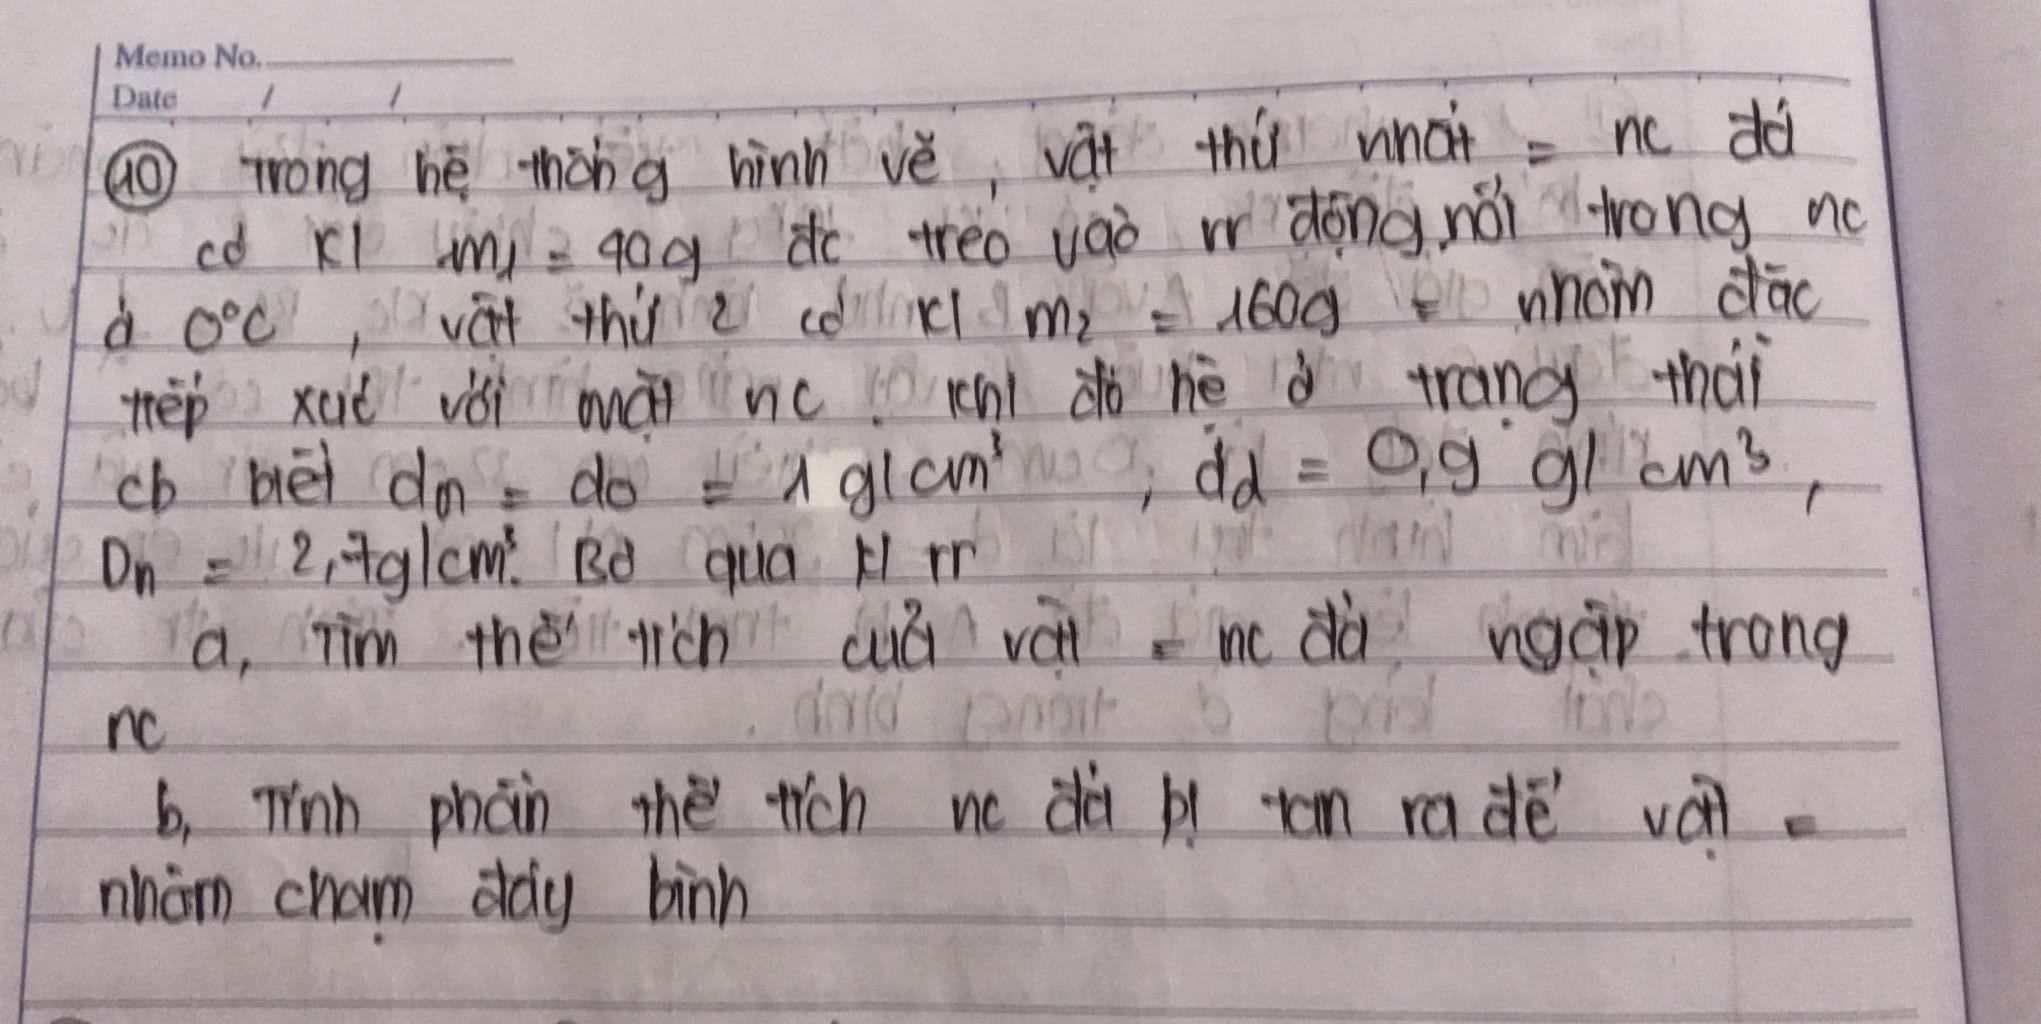 Memo No.
Date / /
10 Trong hệ thống hình vẽ, vật thứ nhất = nc đá
có kl m₁ = 90g đc treo vào rr động, nổi trong nc
ở 0°C, vật thứ 2 có kl m₂ = 160g = nhôm đặc
tiếp xúc với mặt nc. Khi đó hệ ở trạng thái
cb biết dn = do = 1 g/cm³, dd = 0,9 g/cm³,
Dn = 2,7g/cm³. Bỏ qua kl rr
a, Tìm thể tích của vật = nc đá ngập trong
nc
b, Tính phần thể tích nc đá bị tan ra để vật =
nhôm chạm đáy bình